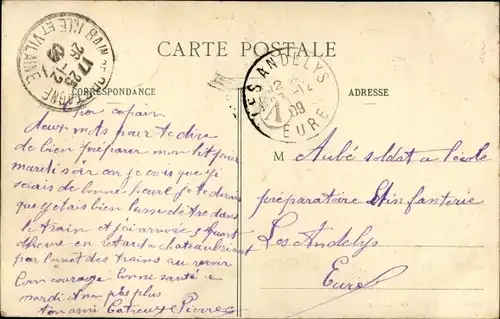 CARTE POSTALE
CORRESPONDANCE
ADRESSE
BAIN DE BRETAGNE
ILLE ET VILAINE
17 25
26 -12
09
LES ANDELYS
12
27 -12
09
EURE
copain
deux mots pour te dire
de bien préparer mon lit pour
mardi soir car je crois que j'y
serais de bonne heure je te dirais
que j'etais bien lassé d'être dans
le train et j'ai arrivé quart
d'heure en retard a chateaubriant
par l'arret des trains au revoir
bon courage bonne santé a
mardi et non pas plus
ton ami Catreux Pierre
M Aubé soldat a l'école
préparatoire d'infanterie
Les Andelys
Eure